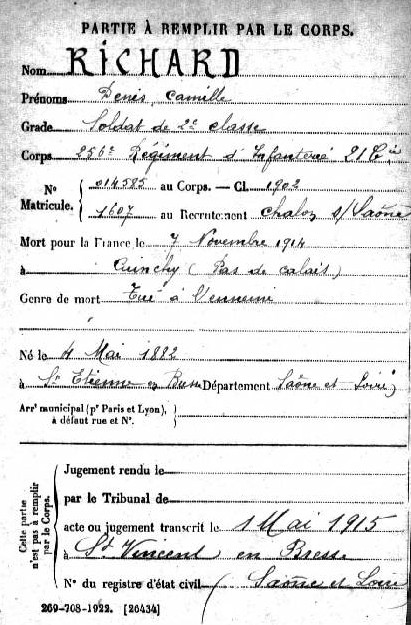 PARTIE À REMPLIR PAR LE CORPS.
Nom RICHARD
Prénoms Denis, Camille
Grade Soldat de 2e classe
Corps 256e Régiment d'Infanterie 21 Cie
N° Matricule. { 014585 au Corps. — Cl. 1902
1607 au Recrutement Chalon s/Saône
Mort pour la France le 7 Novembre 1914
à Cuinchy (Pas de calais)
Genre de mort Tué à l'ennemi
Né le 4 Mai 1882
à St Etienne en Bresse Département Saône et Loire
Arrt municipal (pr Paris et Lyon), à défaut rue et N°.
Cette partie n'est pas à remplir par le Corps.
Jugement rendu le
par le Tribunal de
acte ou jugement transcrit le 1 Mai 1915
à St Vincent en Bresse
N° du registre d'état civil (Saône et Loire
269-708-1922. [26434]